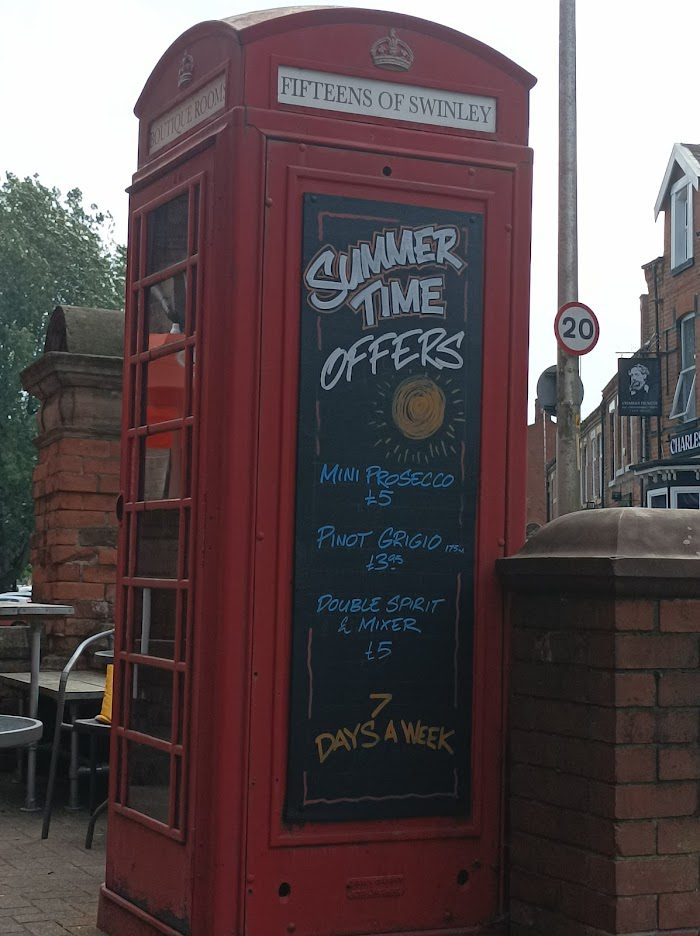 BOUTIQUE ROOMS
FIFTEENS OF SWINLEY
SUMMER
TIME
OFFERS
MINI PROSECCO
£5
PINOT GRIGIO 175ML
£3.95
DOUBLE SPIRIT
& MIXER
£5
7
DAYS A WEEK
20
CHARLES